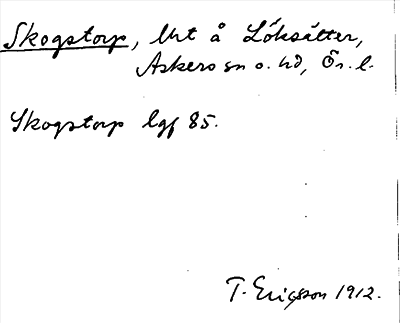 Skogstorp, Urt å Löksätter,
Askers sn o. hd, Ör. l.
Skogstorp lgf 85.
T. Ericsson 1912.